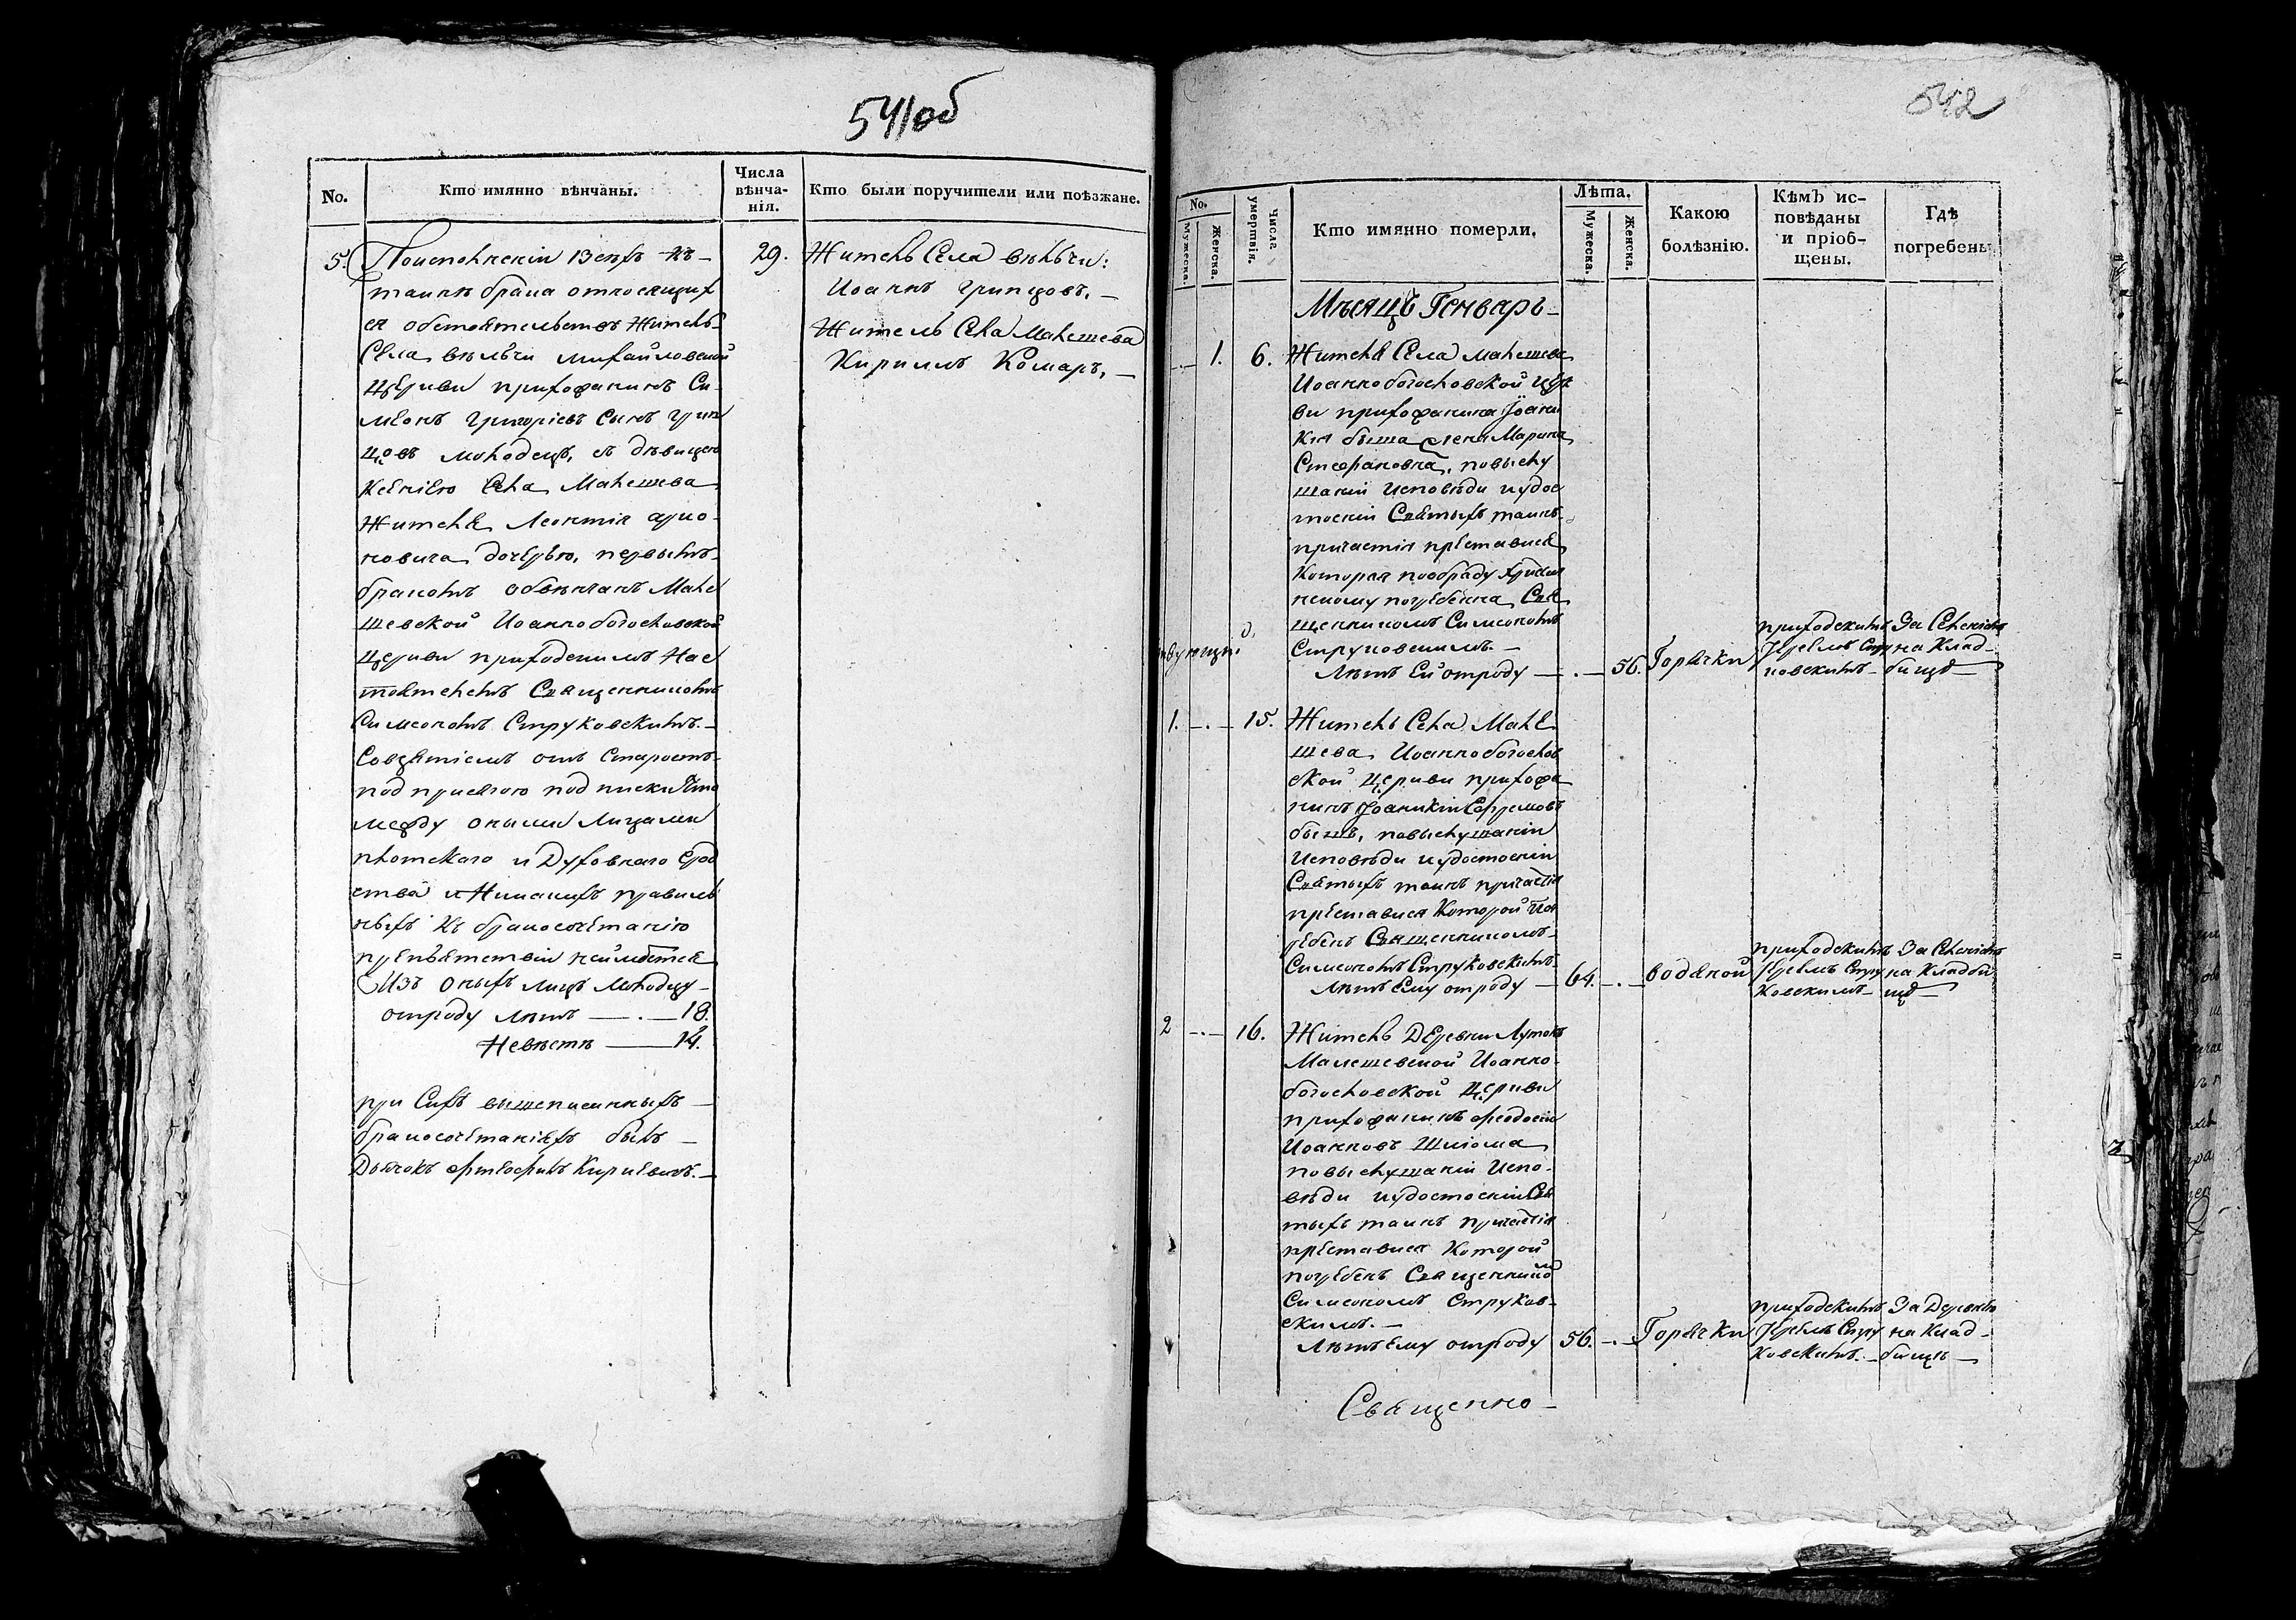 541об
No.
Кто имянно вѣнчаны.
Числа
вѣнча-
нія.
Кто были поручители или поѣзжане.
5.
По исполненіи всехъ къ
таинѣ брака относящих
ся обстоятельствъ житель
Села вѣлѣчи михайловской
церкви прихожанинъ Си-
меонъ Григоріевъ Сынъ Грин
цовъ молодецъ, съ дѣвицею
Ксеніею Села Малешева
жителя Леонтія
новича дочерью, первымъ
бракомъ обвѣнчанъ Мале
шевской Иоаннобогословской
Церкви приходскимъ Нас
тоятелемъ Священникомъ
Симеономъ Струковскимъ.
Совзятіемъ отъ Старостъ
под присягою подписки что
между оными Лицами
плотского и Духовного Срод
ства и Никакихъ правиль
ныхъ къ бракосочетанію
препятствій неимѣется
Изъ оныхъ лицъ молодцу
отроду лѣтъ — . — 18.
Невѣстѣ — 14.
при Сихъ вышеписанныхъ
бракосочетаніяхъ былъ
Дьячокъ Кириевичъ.
29.
Житель Села вѣлѣчи:
Иоаннъ Гринцовъ, —
Житель Села Малешева
Кириллъ Комаръ, —
542
No.
Мужеска.
Женска.
Числа
умертвія.
Кто имянно померли.
Лѣта.
Мужеска.
Женска.
Какою
болѣзнію.
Кѣмъ ис-
повѣданы
и пріоб-
щены.
Гдѣ
погребены
Мѣсяцъ Генварь
1. 6.
Жителя Села малешева
Иоаннобогословской Церк
ви прихожанина Іоани
кія быша жена Марина
Стефановна, повыслу
шаніи исповѣди иудос
тоеніи Святыхъ таинъ
причастія преставися
которая пообряду христиан
скому погребенна Свя
щенникомъ Симеономъ
Струковскимъ. —
Лѣтъ Ей отроду — . — 56.
Горячки
приходскимъ
Іереемъ Стру
ковскимъ
За Селеніемъ
на Клад-
бищѣ
1. — . — 15.
Житель Села Мале
шева Иоаннобогослов
ской Церкви прихожа
нинъ Іоаникій Ефремовъ
бышъ, повыслушаніи
Исповѣди иудостоеніи
Святыхъ таинъ причастія
преставися Которой пог
ребенъ Священникомъ
Симеономъ Струковскимъ
Лѣтъ Ему отроду — 64. — . —
водяной
приходскимъ
Іереемъ Стру
ковскимъ
За Селеніемъ
на Кладби
щѣ
2 — . — 16.
Житель Деревни Лутокъ
Малешевской Иоанно-
богословской Церкви
прихожанинъ Феодосій
Иоанновъ Шліома
повыслушаніи Испо-
вѣди иудостоеніи Свя
тыхъ таинъ причастія
преставися Которой
погребенъ Священнико
Симеономъ Струков-
скимъ. —
Лѣтъ Ему отроду 56. — . —
Горячки
приходскимъ
Іереемъ Стру
ковскимъ.
За Деревнею
на Клад-
бищѣ —
Священно-